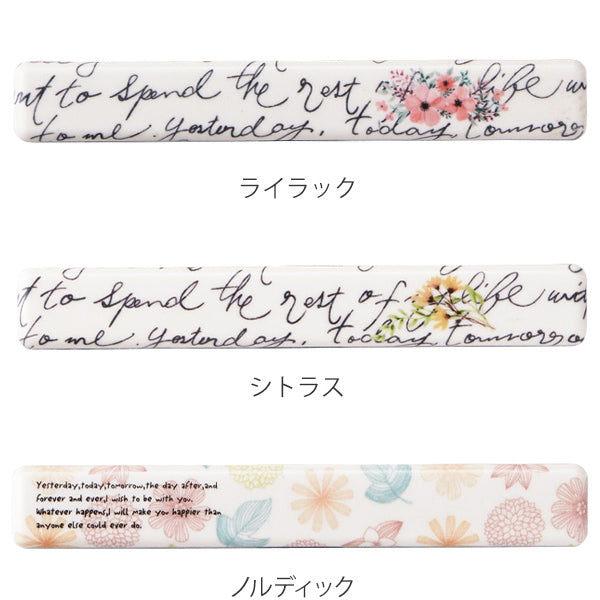 nt to spend the rest of life wit
to me. Yesterday, today, tomorro
ライラック
t to spend the rest of life wit
to me. Yesterday, today, tomorro
シトラス
Yesterday,today,tomorrow,the day after,and
forever and ever,I wish to be with you.
Whatever happens,I will make you happier than
anyone else could ever do.
ノルディック